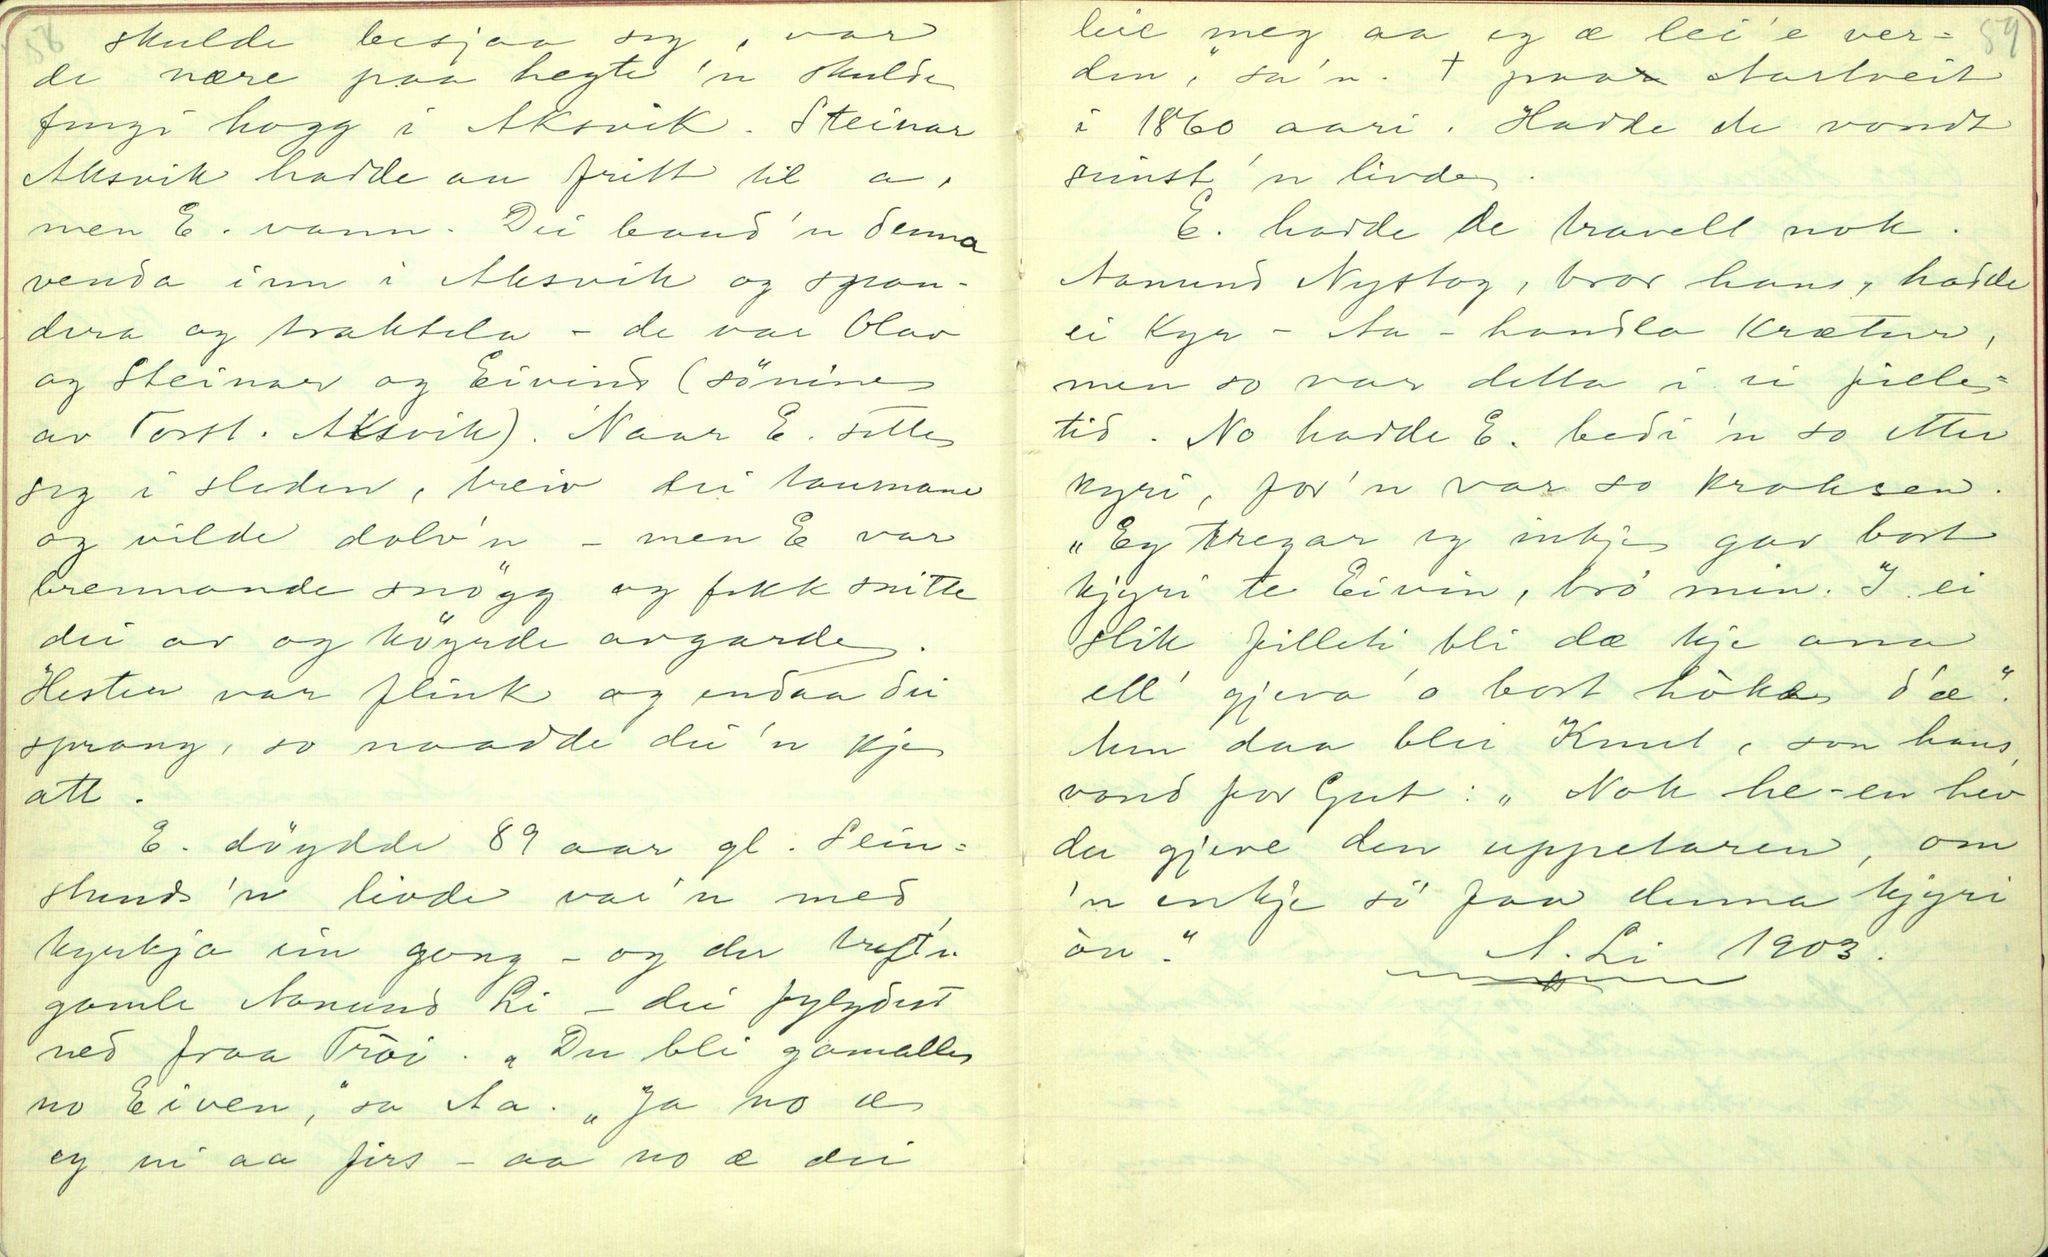 58
skulde besjaa seg, var
de nære paa hegte 'n skulde
fingi hogg i Aksvik. Steinar
Aksvik hadde au fritt til a,
men E. vann. Dei baud 'n denna
venda inn i Aksvik og span-
dera og traktela – de var Olav
og Steinar og Eivind (sönine
av Torst. Aksvik). Naar E. sette
seg i sleden, treiv dei taumane
og vilde dolv'n – men E var
brennande snögg og fekk snitte
dei av og köyrde avgarde.
Hesten var flink og endaa dei
sprang, so naadde dei 'n kje
att.
E. döydde 89 aar gl. Sein-
stunds 'n livde var 'n med
kyrkja ein gong – og der traft'n
gamle Aanund Li – dei fylgdest
ned fraa Tröi. „Du bli gamalle
no Eiven," sa Aa. „Ja no æ
eg ni aa firs – aa no æ dei
59
leie meg aa eg æ lei 'e ver-
den," sa'n. † paa Aartveit
i 1860 aari. Hadde de vondt
sinst 'n livde.
E. hadde de travelt nok.
Aanund Nystog, bror hans, hadde
ei kyr – Aa – handla krætur,
men so var detta i ei fille-
tid. No hadde E. bedi 'n so etter
kyri, for 'n var so kroksen.
„Eg tregar eg inkje gav bort
kjyri te Eivin, bró min. I ei
slik filleti bli dæ kje ana
ell' gjeva 'o bort hökæ d'æ".
Men daa blei Knut, son hans,
vond for Gut: „Nok he-en hev
du gjeve den uppetaren, om
'n enkje só faa denna kjyri
òn."
A. Li 1903.